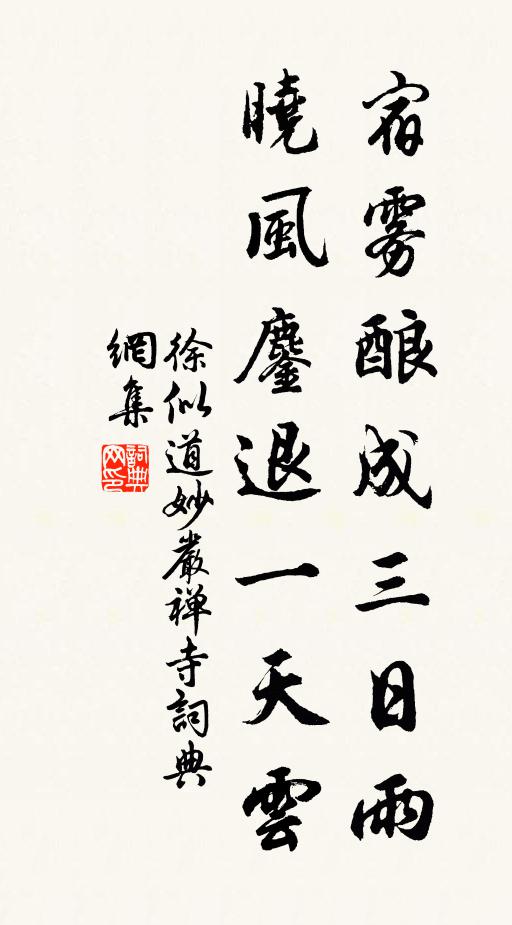 宿雾酿成三日雨
曉風鏖退一天雲
徐似道妙嚴禅寺詞典
網集
詞典網印